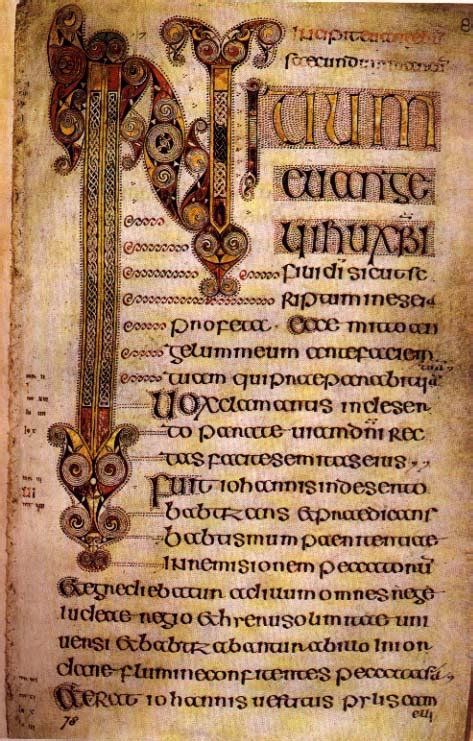 INcipit euangelium
secundum
INItium
euange
lii ihu xpi
fili di sicut sc
riptum in eseia
profeta · Ecce mitto an
gelum meum ante faciem
tuam qui praeparabit uiā tuā
Uox clamantis in deser
to parate uiam dni rec
tas facite semitas eius
Fuit iohannis in deserto
babtizans & praedicans
babtismum paenitentiae
in remisionem peccatorū
& egrediebatur ad illum omnes rege
iudeae regio & hierusolimitae uni
uersi & babtizabantur ab illo in ior
dane flumine confitentes peccata sua
& erat iohannis uestitus pylis cam
elli
78